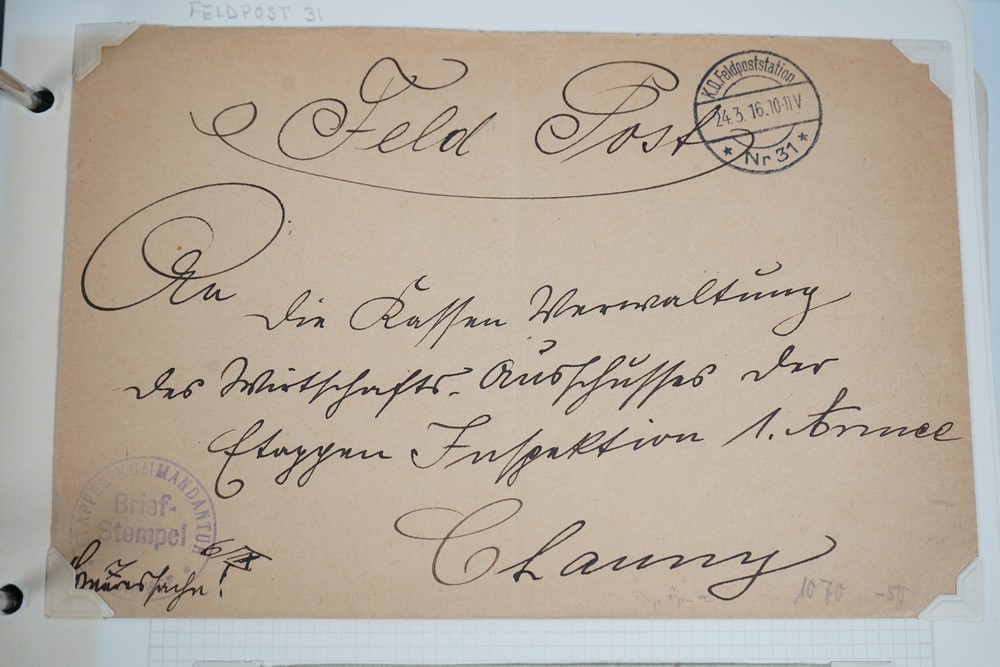 FELDPOST 31
Feld Post
K.D. Feldpoststation
24.3.16.10-11V
* Nr 31 *
An
die Kassen Verwaltung
des Wirtschafts-Ausschusses der
Etappen Inspektion 1. Armee
Chauny
ETAPPEN-KOMMANDANTUR
Brief-
Stempel
Heeressache!
1070 -50